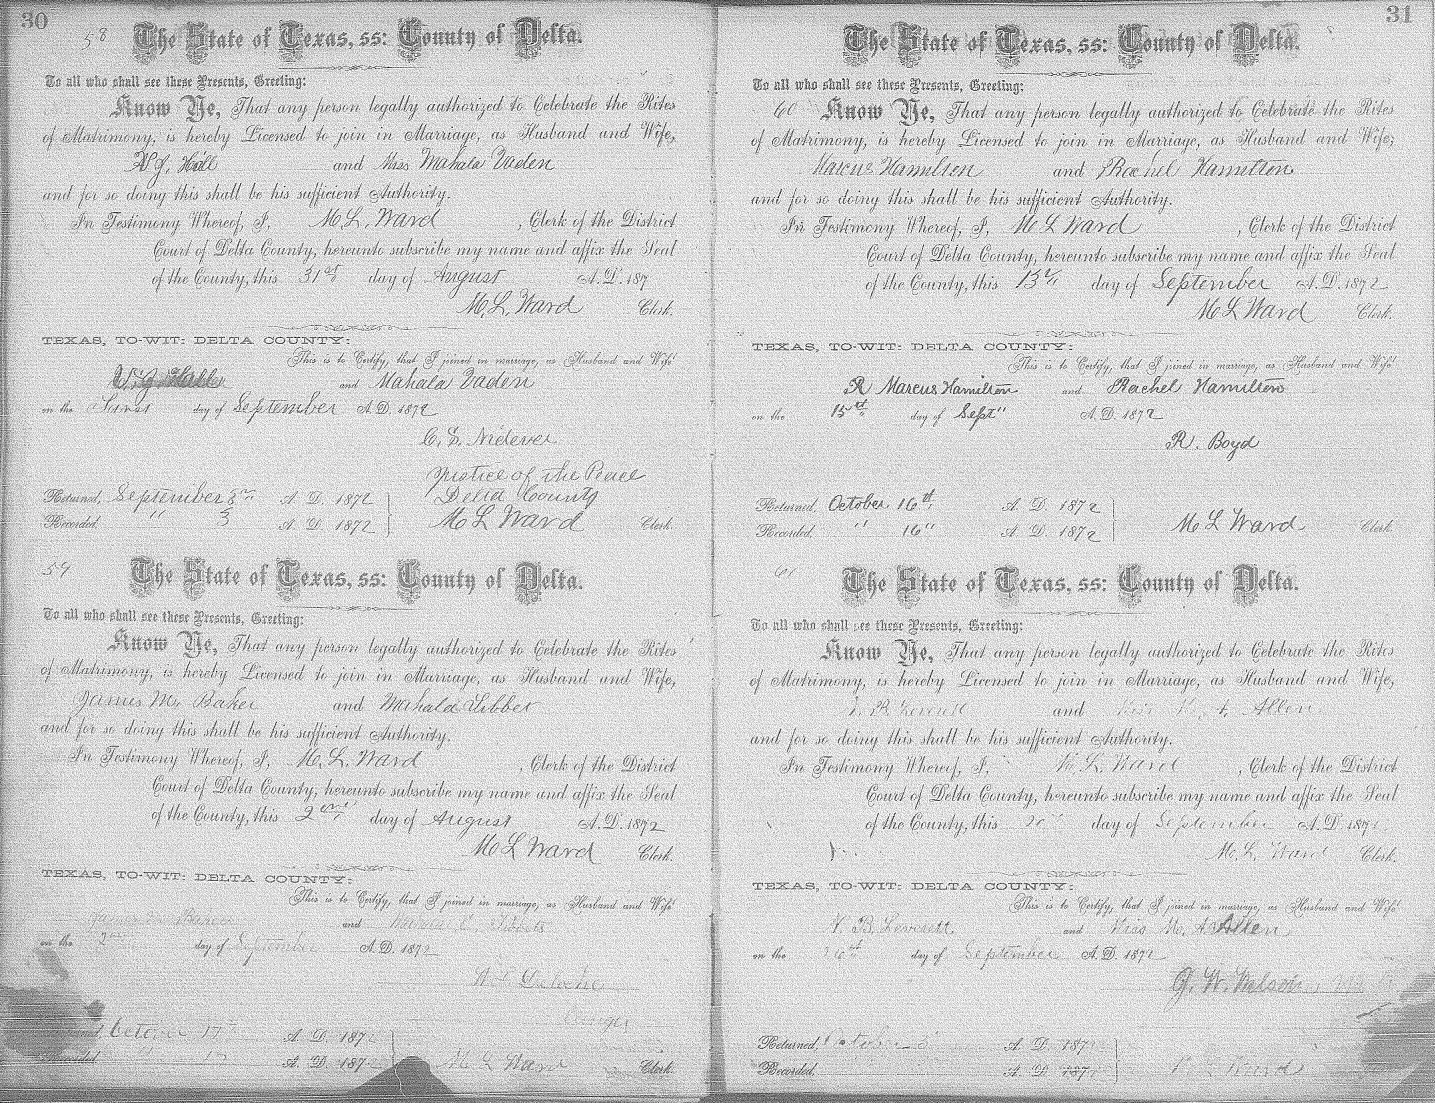 30
58
The State of Texas, ss: County of Delta.
To all who shall see these Presents, Greeting:
Know Ye, That any person legally authorized to Celebrate the Rites
of Matrimony, is hereby Licensed to join in Marriage, as Husband and Wife,
Hall and Miss Mahala Vaden
and for so doing this shall be his sufficient Authority.
In Testimony Whereof, I, M. L. Ward, Clerk of the District
Court of Delta County, hereunto subscribe my name and affix the Seal
of the County, this 31st day of August A. D. 187
M. L. Ward Clerk.
TEXAS, TO-WIT: DELTA COUNTY:
This is to Certify, that I joined in marriage, as Husband and Wife
and Mahala Vaden
on the day of September A. D. 1872
Justice of the Peace
Returned, September 3 A. D. 1872 Delta County
Recorded. " 3 A. D. 1872 M L Ward Clerk.
59
The State of Texas, ss: County of Delta.
To all who shall see these Presents, Greeting:
Know Ye, That any person legally authorized to Celebrate the Rites
of Matrimony, is hereby Licensed to join in Marriage, as Husband and Wife,
James M. Baker and Mahala
and for so doing this shall be his sufficient Authority.
In Testimony Whereof, I, M. L. Ward, Clerk of the District
Court of Delta County, hereunto subscribe my name and affix the Seal
of the County, this 2 day of August A. D. 1872
M L Ward Clerk.
TEXAS, TO-WIT: DELTA COUNTY:
This is to Certify, that I joined in marriage, as Husband and Wife
James M Baker and
on the 2 day of September A. D. 1872
October 17 A. D. 1872
17 A. D. 187 M L Ward Clerk.
31
The State of Texas, ss: County of Delta.
To all who shall see these Presents, Greeting:
60 Know Ye, That any person legally authorized to Celebrate the Rites
of Matrimony, is hereby Licensed to join in Marriage, as Husband and Wife,
Marcus Hamilton and Rachel Hamilton
and for so doing this shall be his sufficient Authority.
In Testimony Whereof, I, M L Ward, Clerk of the District
Court of Delta County, hereunto subscribe my name and affix the Seal
of the County, this 13 day of September A. D. 1872
M L Ward Clerk.
TEXAS, TO-WIT: DELTA COUNTY:
This is to Certify, that I joined in marriage, as Husband and Wife
R Marcus Hamilton and Rachel Hamilton
on the 15 day of Sept" A. D. 1872
R. Boyd
Returned, October 16th A. D. 1872
Recorded. " 16" A. D. 1872 M L Ward Clerk.
61
The State of Texas, ss: County of Delta.
To all who shall see these Presents, Greeting:
Know Ye, That any person legally authorized to Celebrate the Rites
of Matrimony, is hereby Licensed to join in Marriage, as Husband and Wife,
B Leverett and Allen
and for so doing this shall be his sufficient Authority.
In Testimony Whereof, I, M. L. Ward, Clerk of the District
Court of Delta County, hereunto subscribe my name and affix the Seal
of the County, this day of September A. D. 187
M. L. Ward Clerk.
TEXAS, TO-WIT: DELTA COUNTY:
This is to Certify, that I joined in marriage, as Husband and Wife
B. Leverett and Miss M. A Allen
on the 26th day of September A. D. 1872
G. W. Wilson
Returned, October A. D. 187
Recorded. A. D. 187 Ward